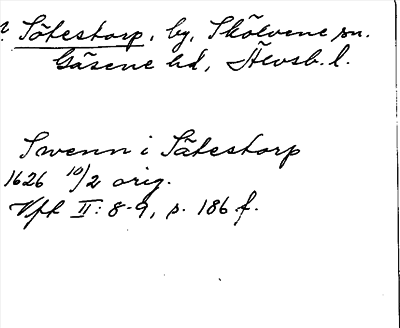 Sätestorp, by, Skölvene sn.
Gäsene hd, Älvsb. l.
Swenn i Sätestorp
1626 10/2 orig.
Vft II: 8-9, s. 186 f.